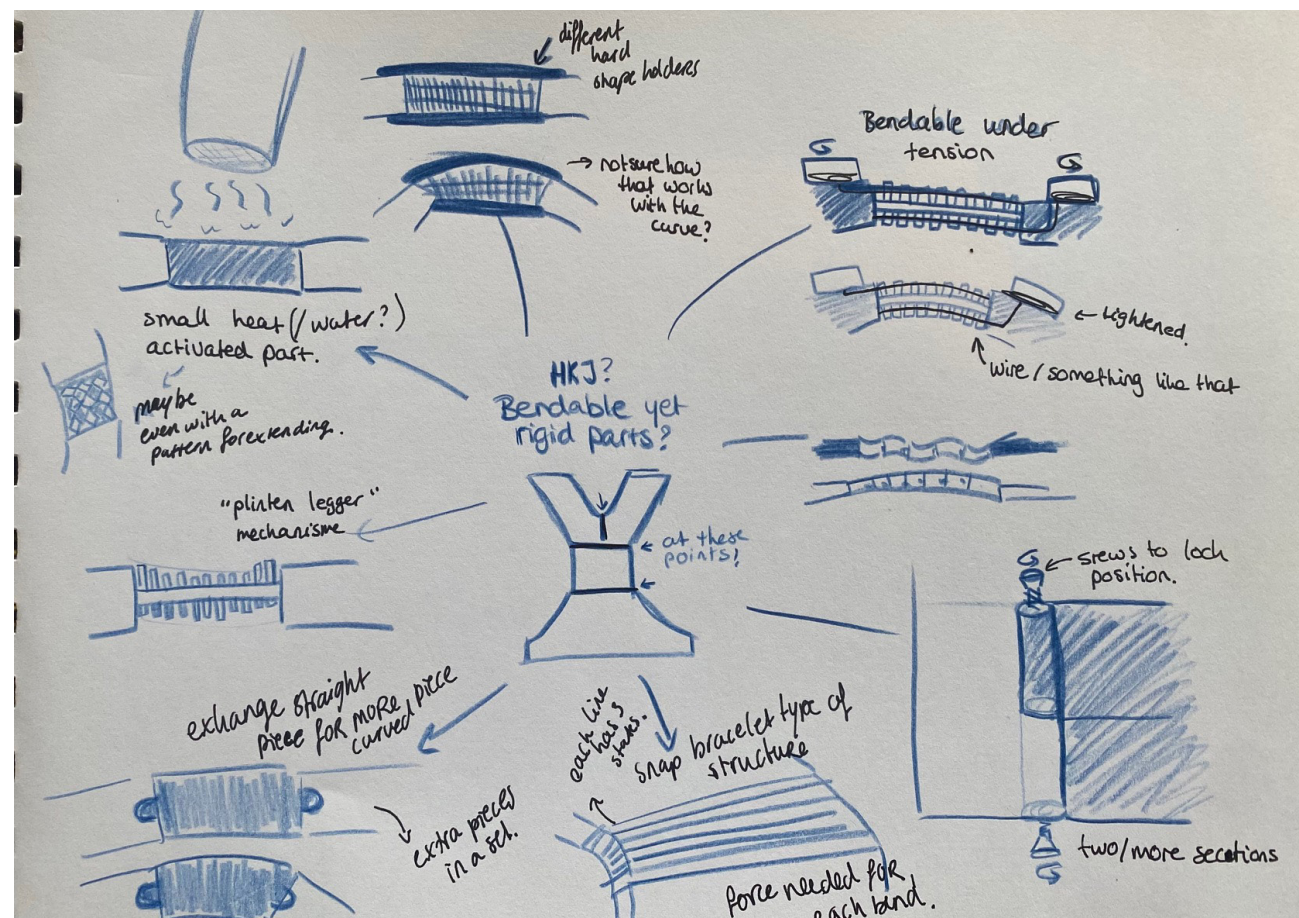 different
hard
shape holders
→ not sure how
that works
with the
curve?
Bendable under
tension
← tightened.
wire/something like that
small heat(/water?)
activated part.
maybe
even with a
pattern for extending.
HKJ?
Bendable yet
rigid parts?
← at these
← points?
"plinten legger"
mechanisme
← srews to loch
position.
two/more secations
exhange straight
piece for more piece
curved
extra pieces
in a set.
each line
has 3
states.
snap bracelet type of
structure
force needed for
each bend.